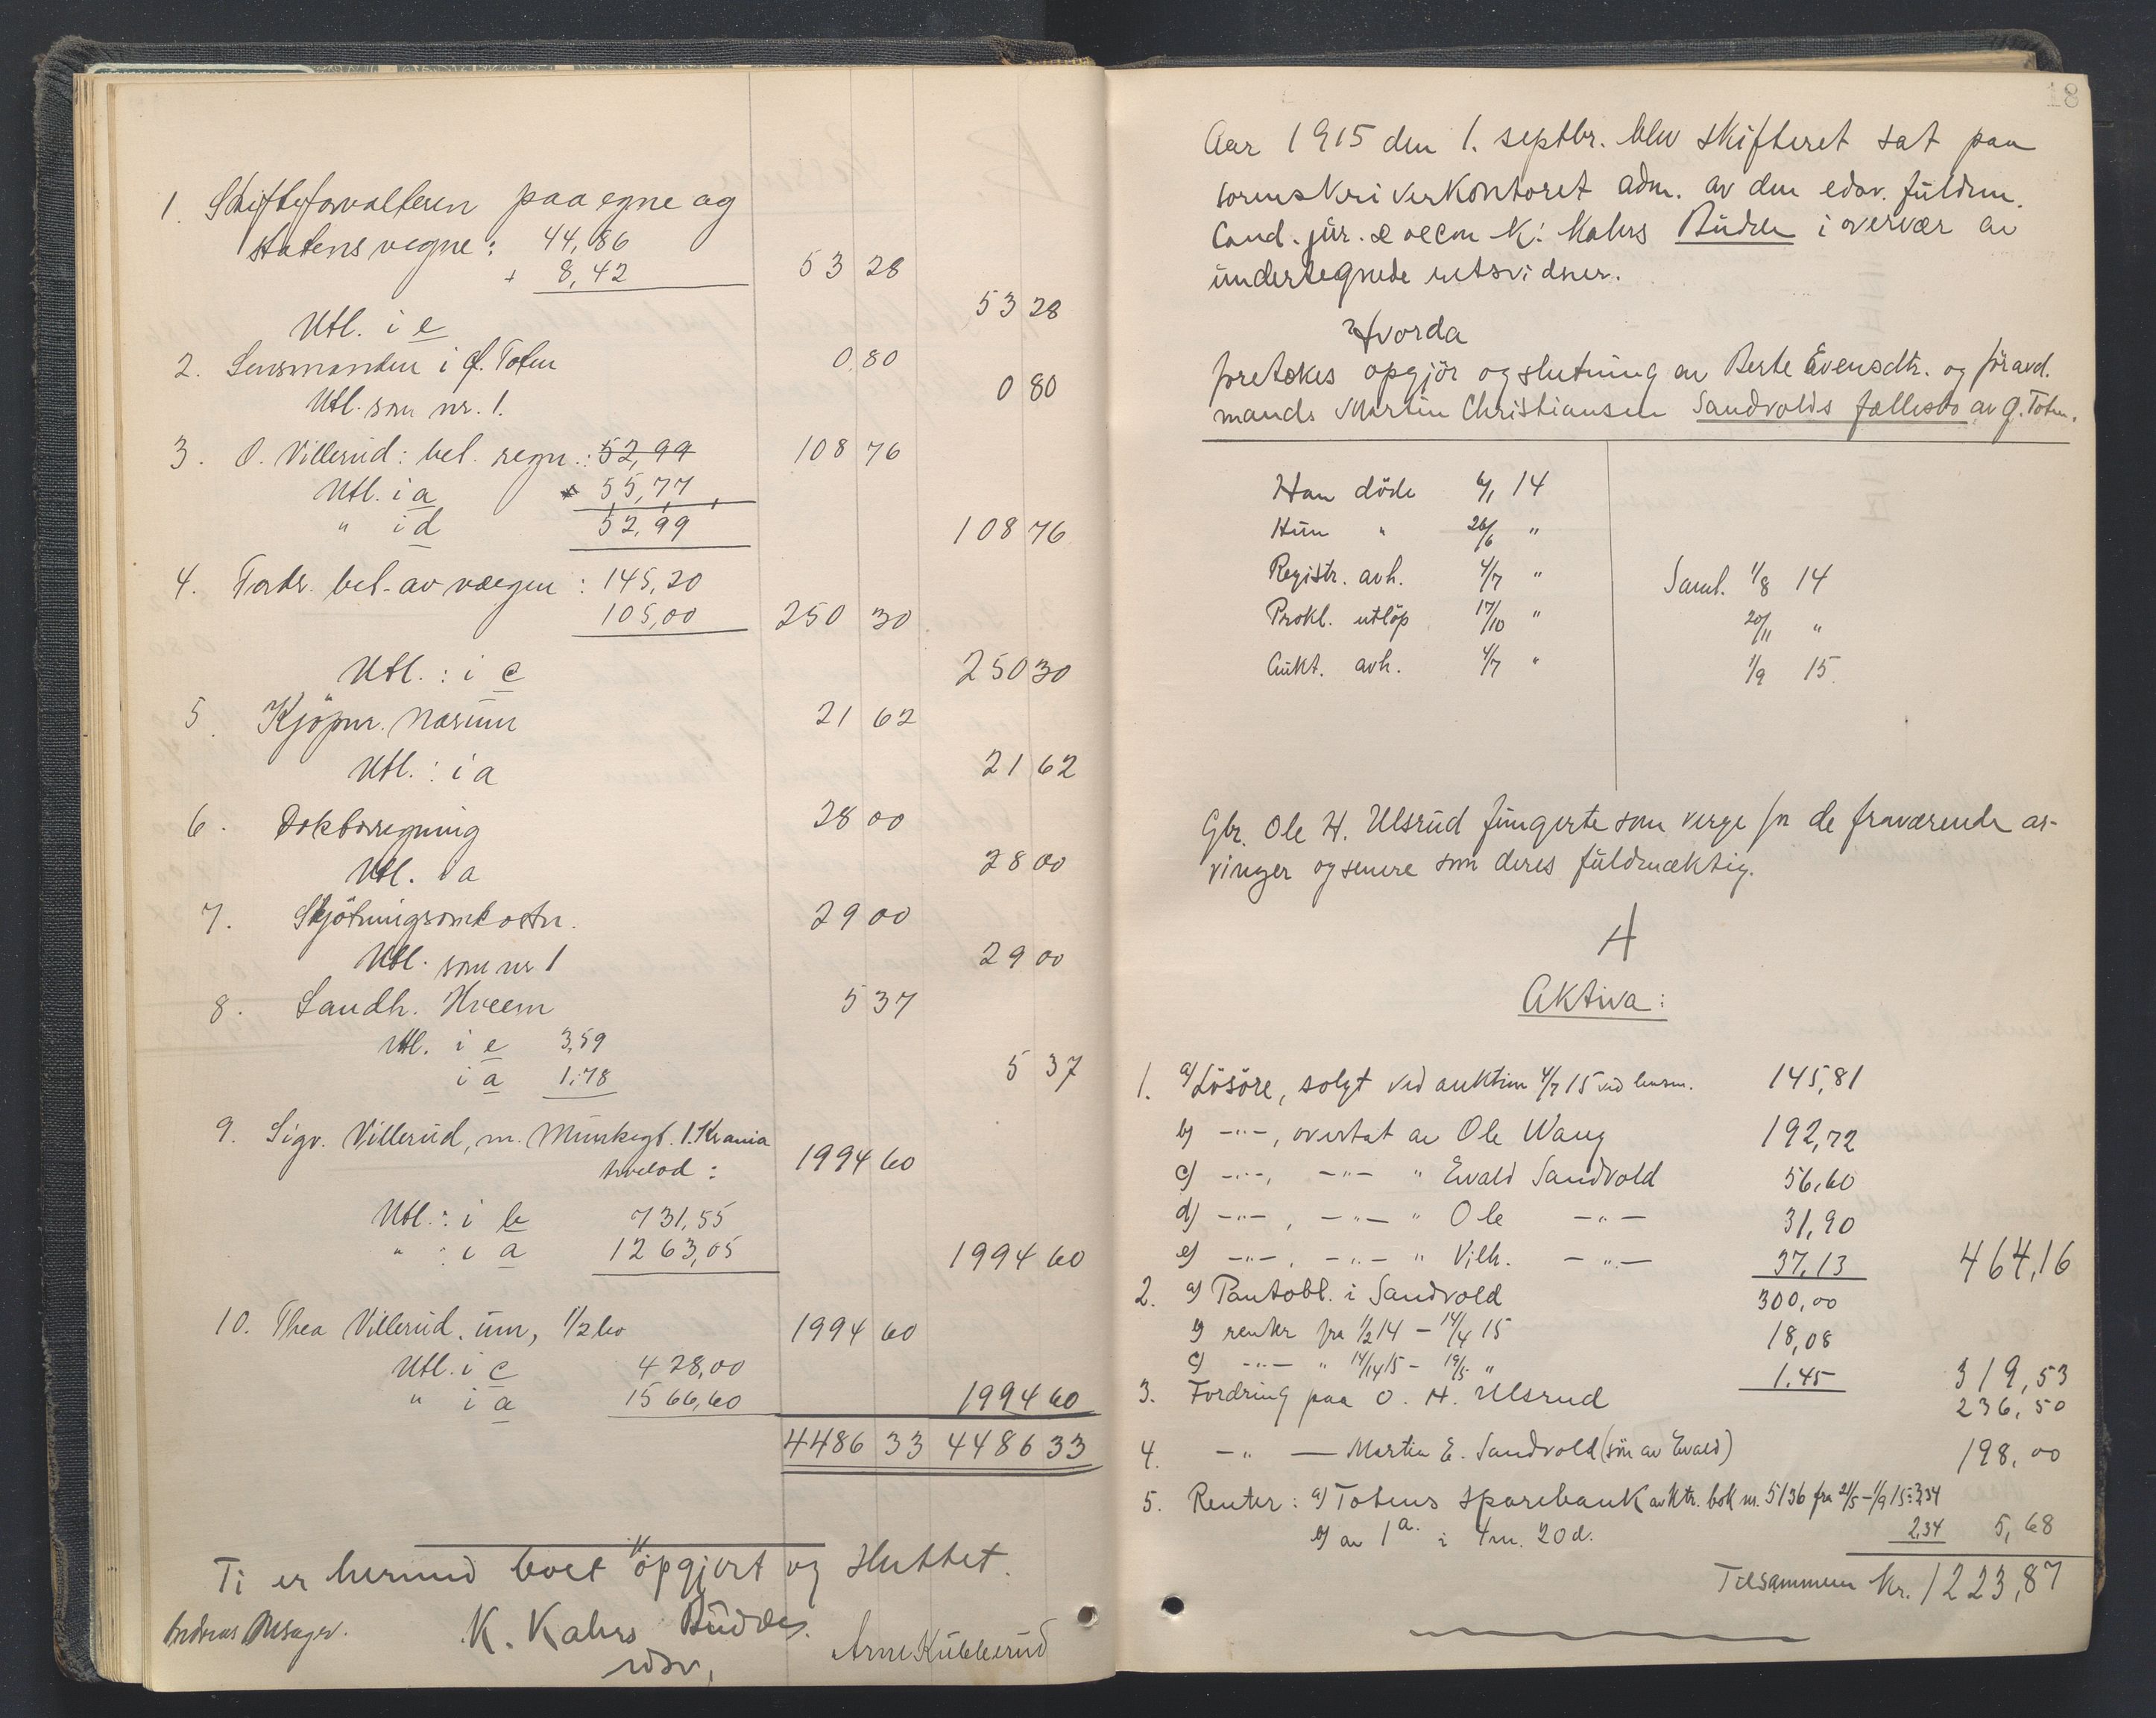 1. Skifteforvalteren paa egne og
statens vegne: 44,86
+ 8,42 53 28
Utl. i e 53 28
2. Lensmanden i Ø. Toten 0,80
Utl. som nr. 1. 0 80
3. O. Villerud: bet. regn.: 52,99 108 76
Utl. i a 55,77
" i d 52,99 108 76
4. Fordr. bet. av værgen: 145,30
105,00 250 30
Utl.: i c 250 30
5. Kjøpm. Narum 21 62
Utl.: i a 21 62
6. Doktorregning 28 00
Utl. i a 28 00
7. Skjøtningsomkostn. 29 00
Utl. som nr 1 29 00
8. Landh. Kreem 5 37
Utl. i e 3,59
i a 1,78 5 37
9. Sigv. Villerud, m. Munkegt. 1. Krania
hvelod: 1994 60
Utl.: i b 731,55
" : i a 1263,05 1994 60
10. Thea Villerud, um, 1/2 bo 1994 60
Utl. i c 428,00
" i a 1566,60 1994 60
4486 33 4486 33
Ti er hermed boet opgjort og sluttet.
K. Kahrs Budde
edsv.
Arne Kubberud
18
Aar 1915 den 1. septbr. blev skifteret sat paa
sorenskriverkontoret adm. av den edsv. fuldm.
Cand. jur. & oecon K. Kahrs Budde i overvær av
undertegnede retsvidner.
Hvorda
foretokes opgjör og slutning av Berte Evensdtr. og föravd.
mands Martin Christiansen Sandvolds fællesbo av Ø. Toten.
Han döde 6/1 14
Hun " 26/6 "
Registr. avh. 4/7 " Saml. 1/8 14
Prokl. utlöp 17/10 " 20/11 "
Aukt. avh. 4/7 " 1/9 15.
Gbr. Ole H. Ulsrud fungerte som verge for de fraværende ar-
vinger og senere som deres fuldmæktig.
A
Aktiva:
1. a) Lösöre, solgt ved auktion 4/7 15 ved lensm. 145,81
b) -"-, overtat av Ole Wang 192,72
c) -"-, -"- " Evald Sandvold 56,60
d) -"-, -"- " Ole -"- 31,90
e) -"-, -"- " Vilh. -"- 37,13 464,16
2. a) Pantobl. i Sandvold 300,00
b) renter fra 1/2 14 - 14/4 15 18,08
c) -"- " 14/4 15 - 19/5 " 1.45 319,53
3. Fordring paa O. H. Ulsrud 236,50
4. -"- Martin E. Sandvold (sön av Evald) 198,00
5. Renter: a) Totens Sparebank av ktr. bok nr. 5136 fra 21/5 - 1/9 15 = 3,34
b) av 1 a. i 4 m. 20 d. 2,34 5,68
Tilsammen kr. 1223,87